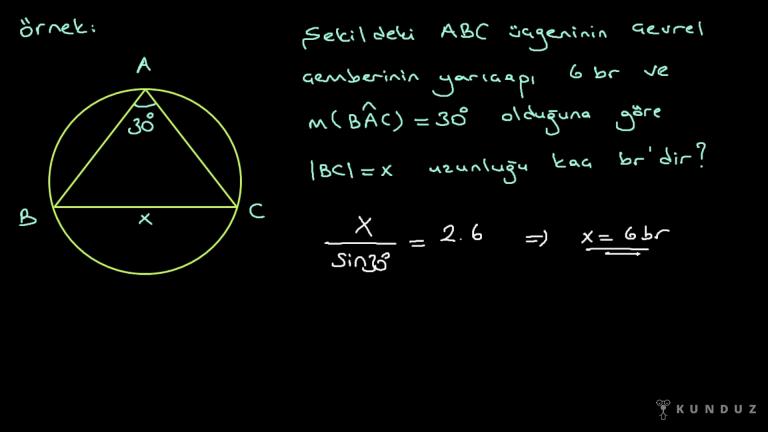 örnek:
Şekildeki ABC üçgeninin çevrel
çemberinin yarıçapı 6 br ve
m(BÂC) = 30° olduğuna göre
|BC| = x uzunluğu kaç br'dir?
A
30°
B
C
x
x / sin30° = 2.6 ⇒ x = 6 br
KUNDUZ